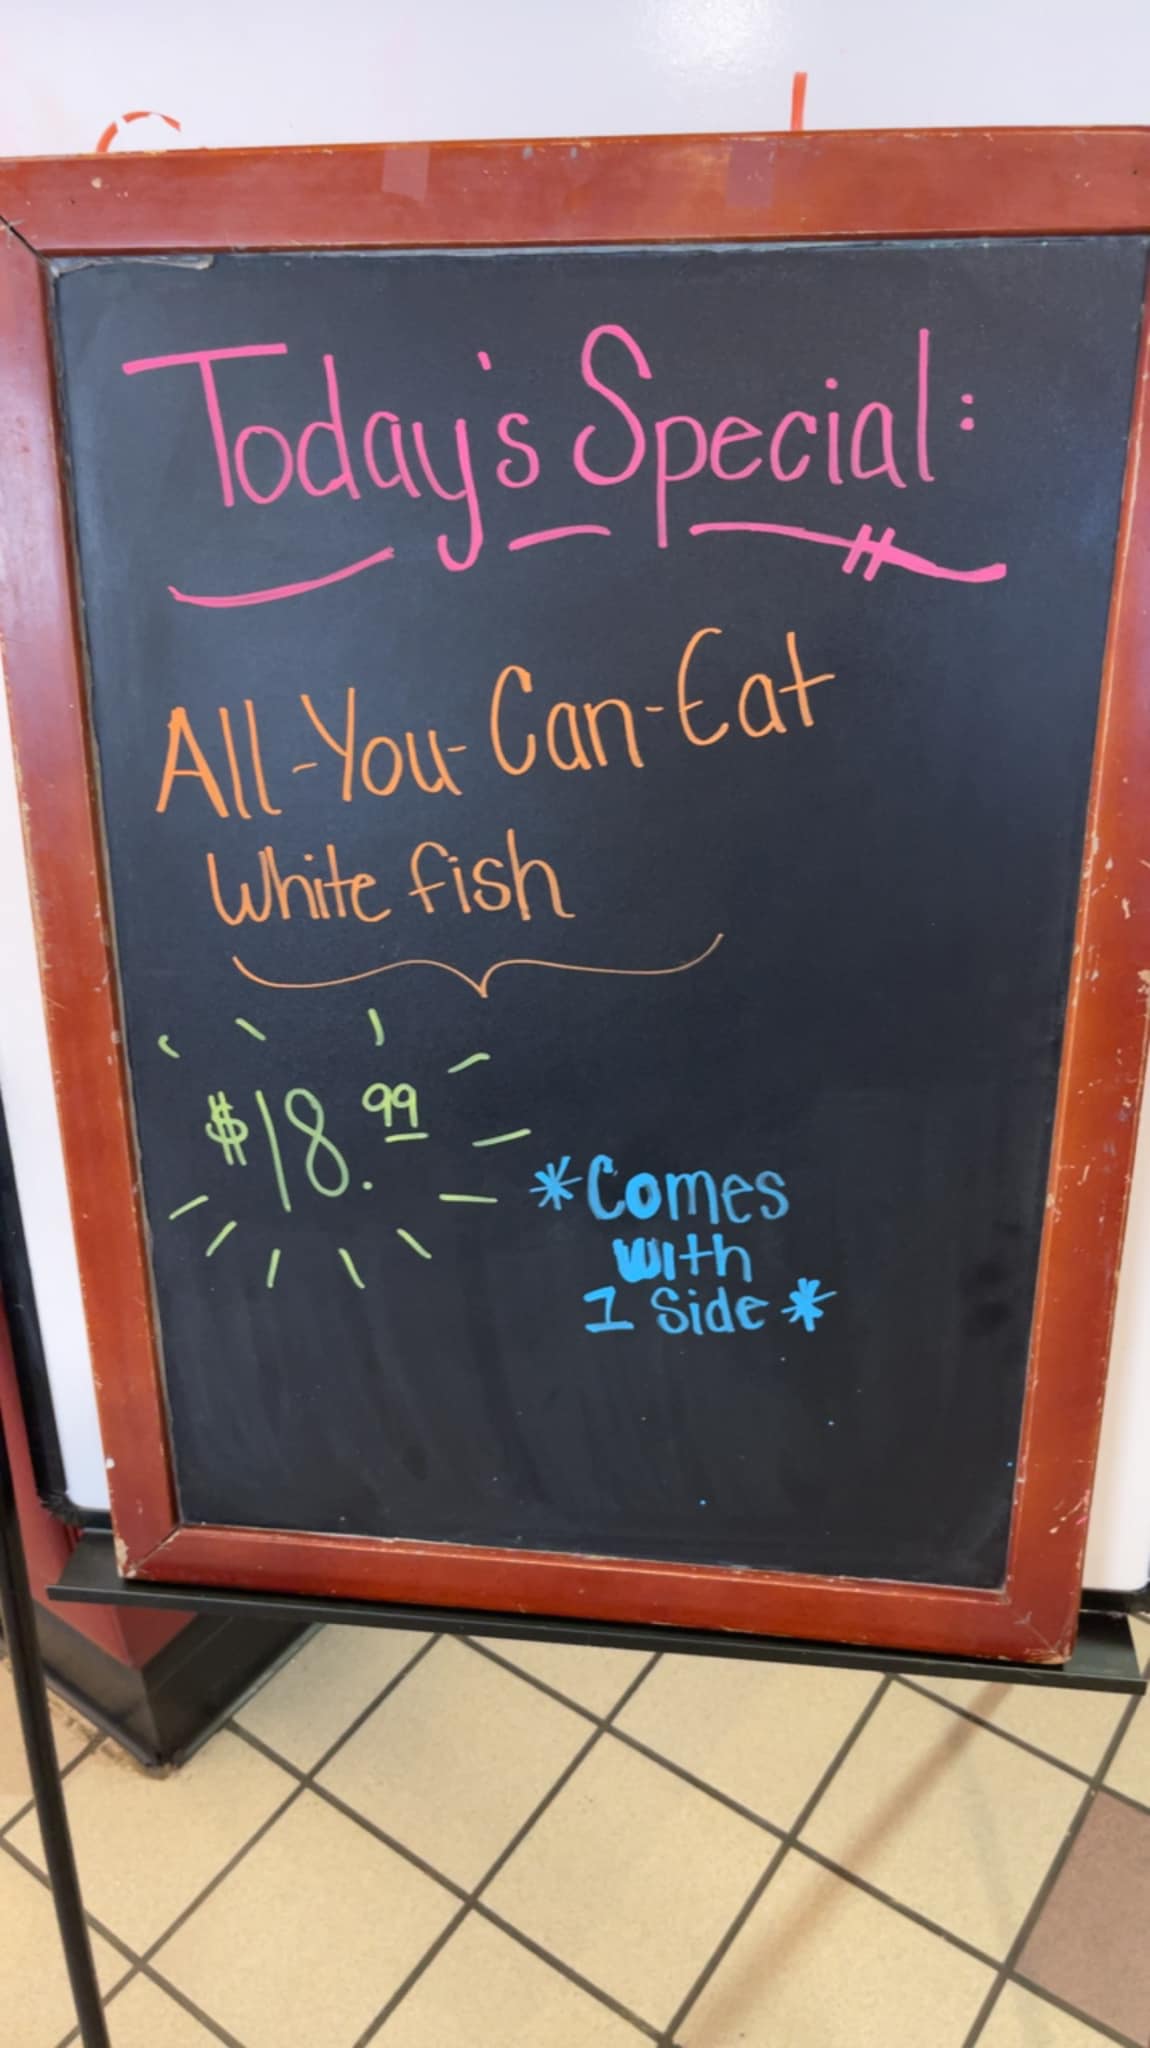 Today's Special:
All-You-Can-Eat
White fish
$18.99
*Comes
with
1 Side*